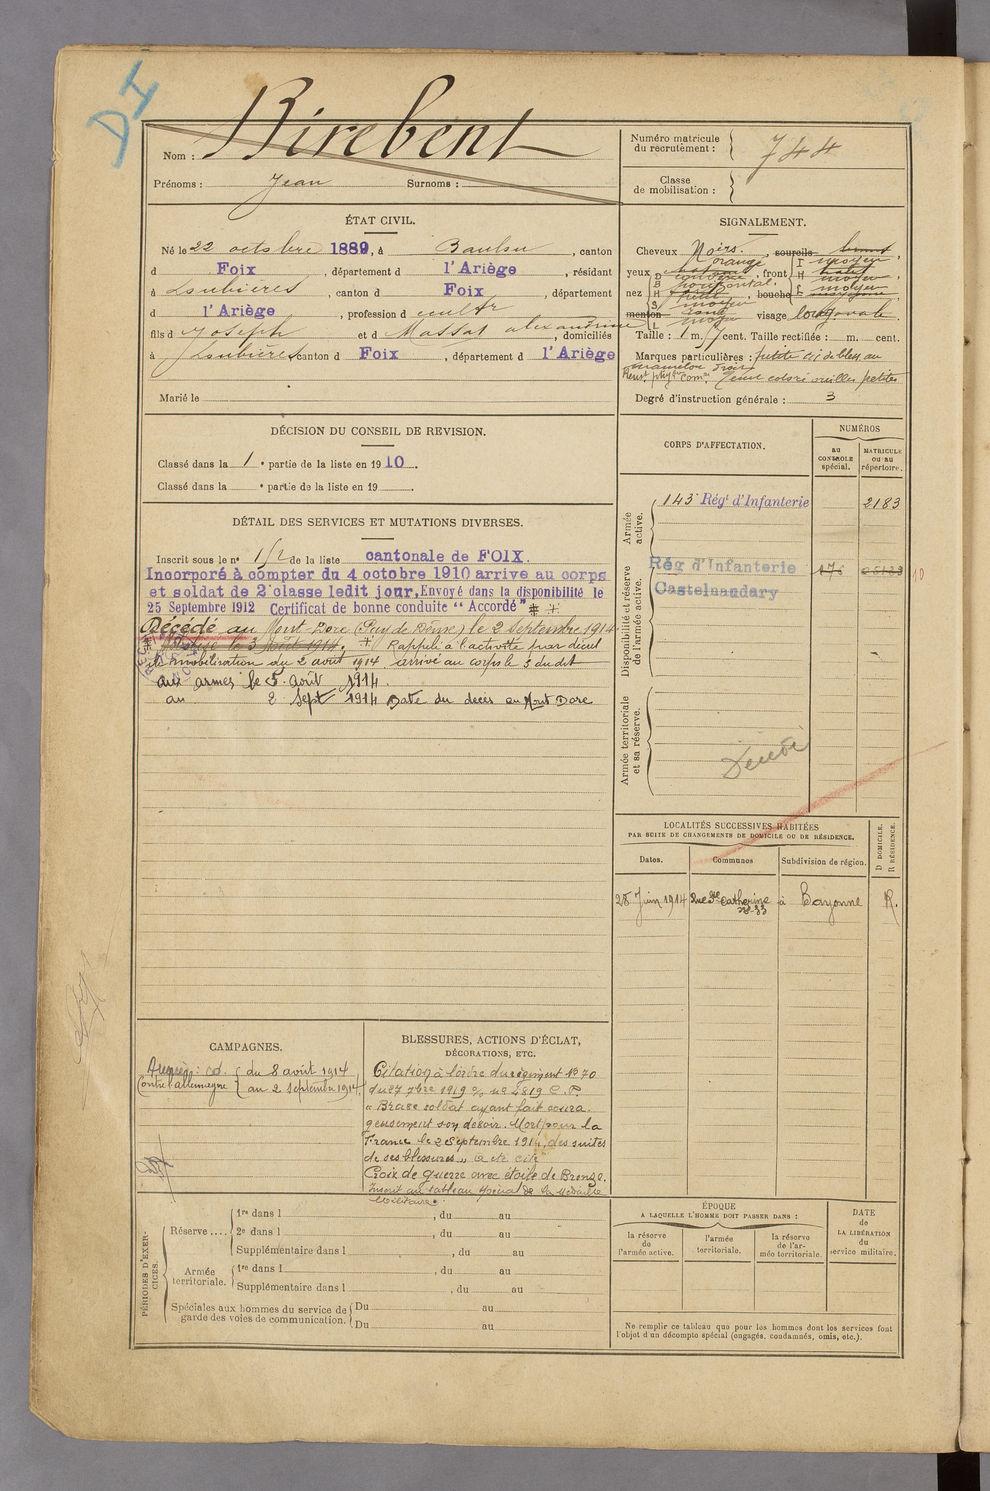 DI
Nom : Birebent
Prénoms : Jean Surnoms :
Numéro matricule du recrutement : 744
Classe de mobilisation :
ÉTAT CIVIL.
Né le 22 octobre 1889, à Baulou, canton
d Foix, département d l'Ariège, résidant
à Loubières, canton d Foix, département
d l'Ariège, profession d cultr
fils d Joseph et d Massat alexandrine, domiciliés
à Loubières canton d Foix, département d l'Ariège
Marié le
SIGNALEMENT.
Cheveux Noirs. sourcils
yeux orangé, front
nez, bouche
menton visage long ovale
Taille : 1 m. cent. Taille rectifiée : m. cent.
Marques particulières : petite cic de bless au
mamelon droit
Renst phyque comre Teint coloré oreilles petites
Degré d'instruction générale : 3
DÉCISION DU CONSEIL DE REVISION.
Classé dans la 1e partie de la liste en 1910.
Classé dans la e partie de la liste en 19
DÉTAIL DES SERVICES ET MUTATIONS DIVERSES.
Inscrit sous le no de la liste cantonale de FOIX.
Incorporé à compter du 4 octobre 1910 arrive au corps
et soldat de 2e classe ledit jour, Envoyé dans la disponibilité le
25 Septembre 1912 Certificat de bonne conduite "Accordé"
Décédé au Mont-Dore (Puy de Dôme) le 2 Septembre 1914.
Mobilisé le 3 Août 1914. + Rappelé à l'activité par décret
de mobilisation du 2 août 1914 arrivé au corps le 3 du dit
aux armes le 5 août 1914.
au 2 Sept 1914 Date du décès au Mont Dore
CORPS D'AFFECTATION.
NUMÉROS
au CONTROLE spécial.
MATRICULE ou au répertoire.
Armée active.
143 Régt d'Infanterie 2183
Disponibilité et réserve de l'armée active.
Rég d'Infanterie
Castelnaudary
10
Armée territoriale et sa réserve.
Décédé
LOCALITÉS SUCCESSIVES HABITÉES
PAR SUITE DE CHANGEMENTS DE DOMICILE OU DE RÉSIDENCE.
Dates. Communes Subdivision de région. D DOMICILE. R RÉSIDENCE.
28 Juin 1914 Rue Ste Catherine à Bayonne R.
CAMPAGNES.
Contre l'allemagne du 8 août 1914
au 2 septembre 1914
BLESSURES, ACTIONS D'ÉCLAT,
DÉCORATIONS, ETC.
Citation à l'ordre du régiment No 70
du 27 9bre 1919 no 2819 C.P.
"Brave soldat ayant fait coura-
geusement son devoir. Mort pour la
France le 2 Septembre 1914, des suites
de ses blessures" a été cité
Croix de guerre avec étoile de Bronze.
Inscrit au tableau spécial de la Médaille
Militaire.
PÉRIODES D'EXERCICES.
Réserve .... 1re dans l , du au
2e dans l , du au
Supplémentaire dans l , du au
Armée territoriale. 1re dans l , du au
Supplémentaire dans l , du au
Spéciales aux hommes du service de garde des voies de communication. Du au
Du au
ÉPOQUE
A LAQUELLE L'HOMME DOIT PASSER DANS :
la réserve de l'armée active.
l'armée territoriale.
la réserve de l'armée territoriale.
DATE de LA LIBÉRATION du service militaire.
Ne remplir ce tableau que pour les hommes dont les services font
l'objet d'un décompte spécial (engagés, condamnés, omis, etc.).